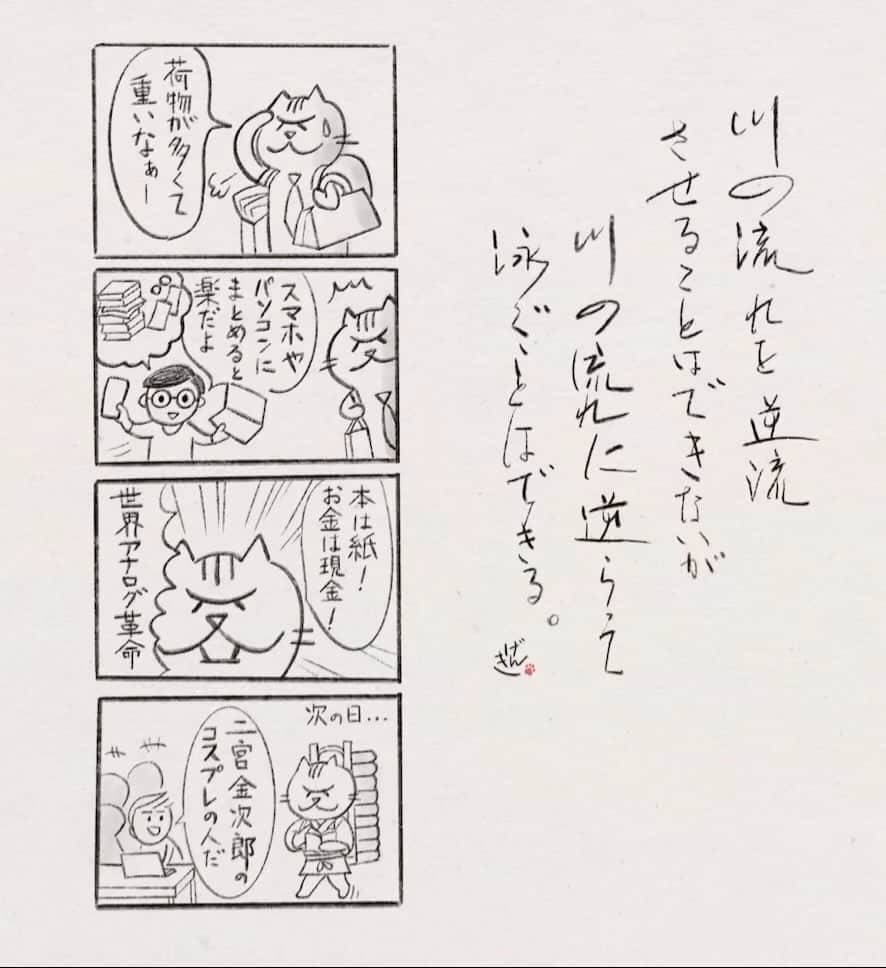 川の流れを逆流
させることはできないが
川の流れに逆らって
泳ぐことはできる。
げん
き
荷物が多くて
重いなぁー
スマホや
パソコンに
まとめると
楽だよ
本は紙!
お金は現金!
世界アナログ革命
次の日...
二宮金次郎の
コスプレの人だ